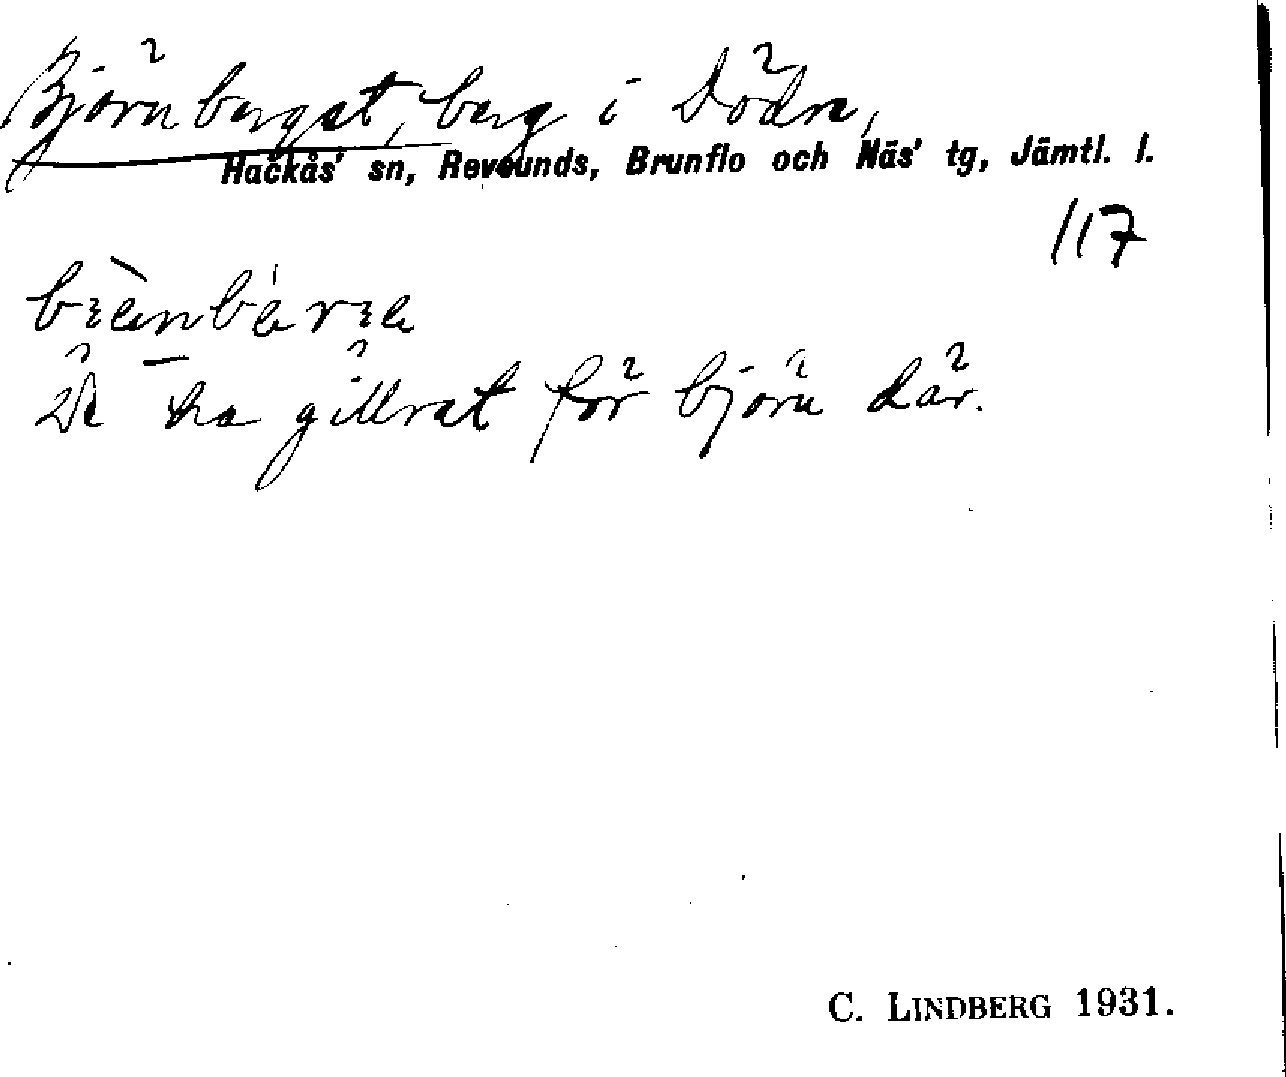 Björnberget, berg i Dödre,
Hackås' sn, Revsunds, Brunflo och Näs' tg, Jämtl. l.
117
De ha gillrat för björn där.
C. LINDBERG 1931.